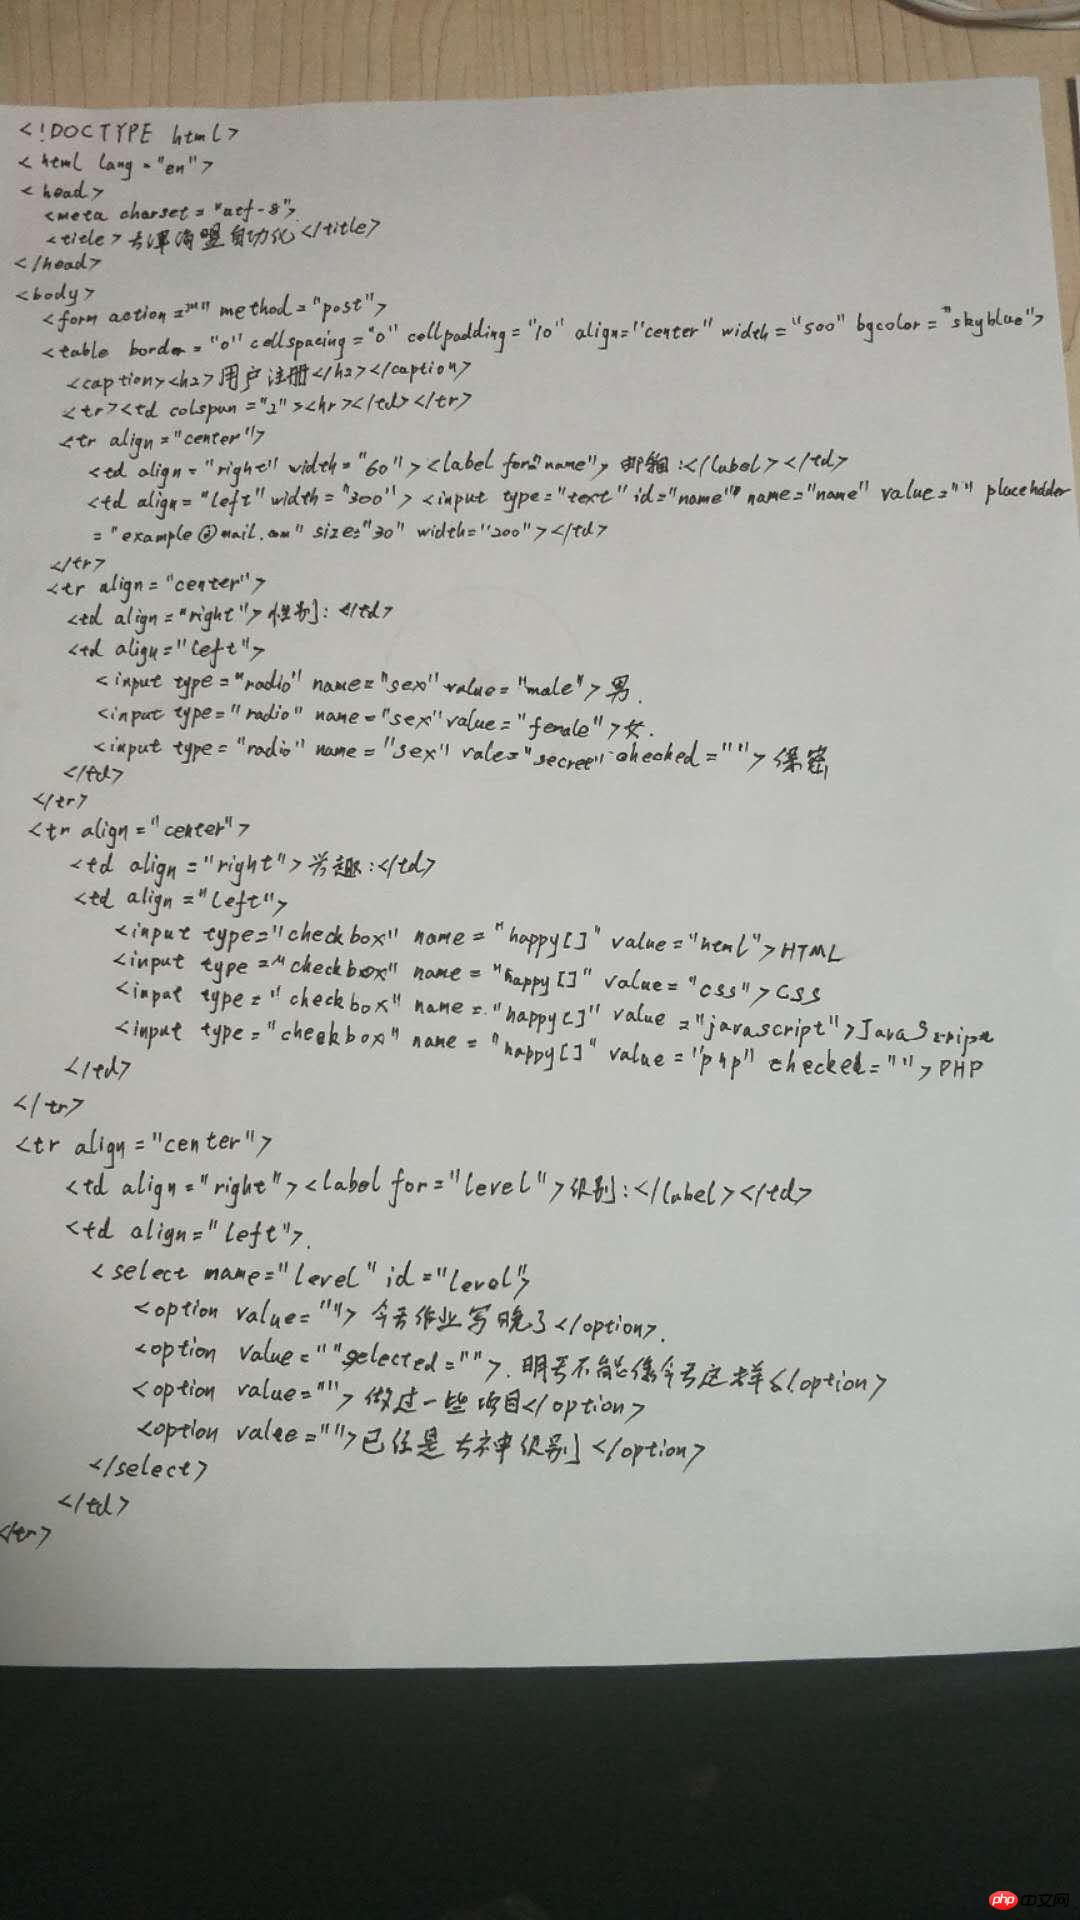 <!DOCTYPE html>
<html lang="en">
<head>
<meta charset="utf-8">
<title>自动化</title>
</head>
<body>
<form action="" method="post">
<table border="0" cellspacing="0" cellpadding="10" align="center" width="500" bgcolor="skyblue">
<caption><h2>用户注册</h2></caption>
<tr><td colspan="2"><hr></td></tr>
<tr align="center">
<td align="right" width="60"><label for="name">邮箱:</label></td>
<td align="left" width="300"><input type="text" id="name" name="name" value="" placeholder
="example@mail.com" size="30" width="200"></td>
</tr>
<tr align="center">
<td align="right">性别:</td>
<td align="left">
<input type="radio" name="sex" value="male">男.
<input type="radio" name="sex" value="female">女.
<input type="radio" name="sex" vale="secret" checked="">保密
</td>
</tr>
<tr align="center">
<td align="right">兴趣:</td>
<td align="left">
<input type="checkbox" name="happy[]" value="html">HTML
<input type="checkbox" name="happy[]" value="css">CSS
<input type="checkbox" name="happy[]" value="javascript">JavaScript
<input type="checkbox" name="happy[]" value="php" checked="">PHP
</td>
</tr>
<tr align="center">
<td align="right"><label for="level">级别:</label></td>
<td align="left">.
<select name="level" id="level">
<option value="">今天作业写晚了</option>.
<option value="" selected="">.明天不能像今天这样</option>
<option value="">做过一些项目</option>
<option value="">已经是大神级别</option>
</select>
</td>
</tr>
php中文网